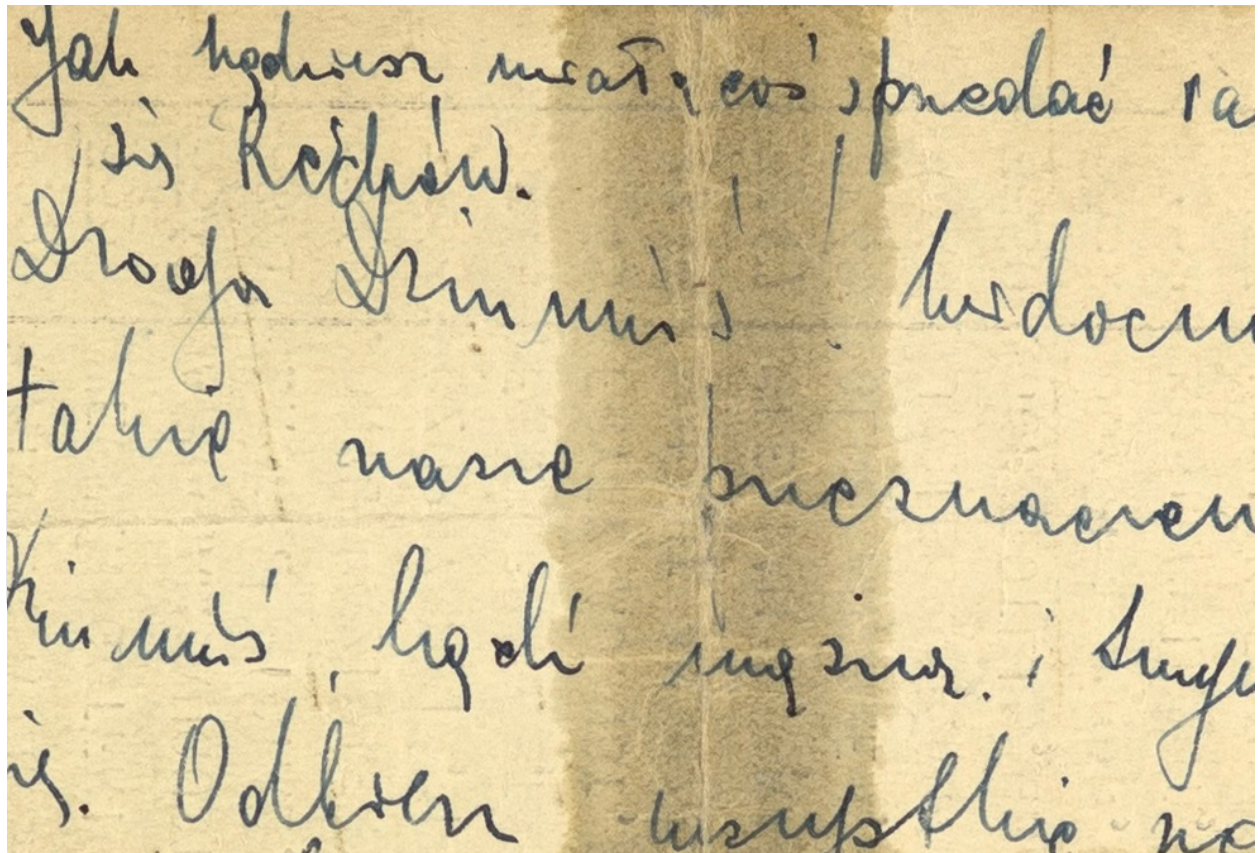 Jak będziesz miała coś sprzedać ra
się
Droga Dzinuś! widoczn
takie nasze przeznaczen
Dzinuś, bądź mężna i trzym
się. Odbierz wszystkie na